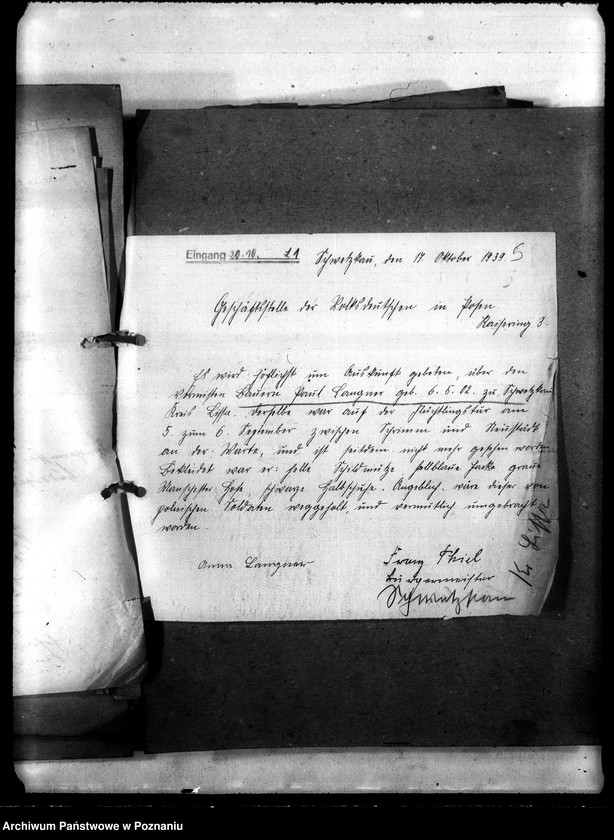 Eingang 20.10. 
Schwetzkau, den 17. Oktober 1939.
Geschäftsstelle der Volksdeutschen in Posen
Kaiserring 3.
Es wird höflichst um Auskunft gebeten, über den
vermissten Bauern Paul Langner geb. 6.5.02. zu Schwetzkau
Kreis Lissa. Derselbe war auf der Flüchtlingstur am
5. zum 6. September zwischen Schrimm und Neustadt
an der Warte, und ist seitdem nicht mehr gesehen worden.
Bekleidet war er: helle Schildmütze hellblaue Jacke graue
Manschester Hose, schwarze Halbschuhe. Angeblich wäre dieser von
polnischen Soldaten weggeholt, und vermutlich umgebracht
worden.
Anna Langner
Franz Thiel
Bürgermeister
Schwetzkau
Kr Lissa
Archiwum Państwowe w Poznaniu